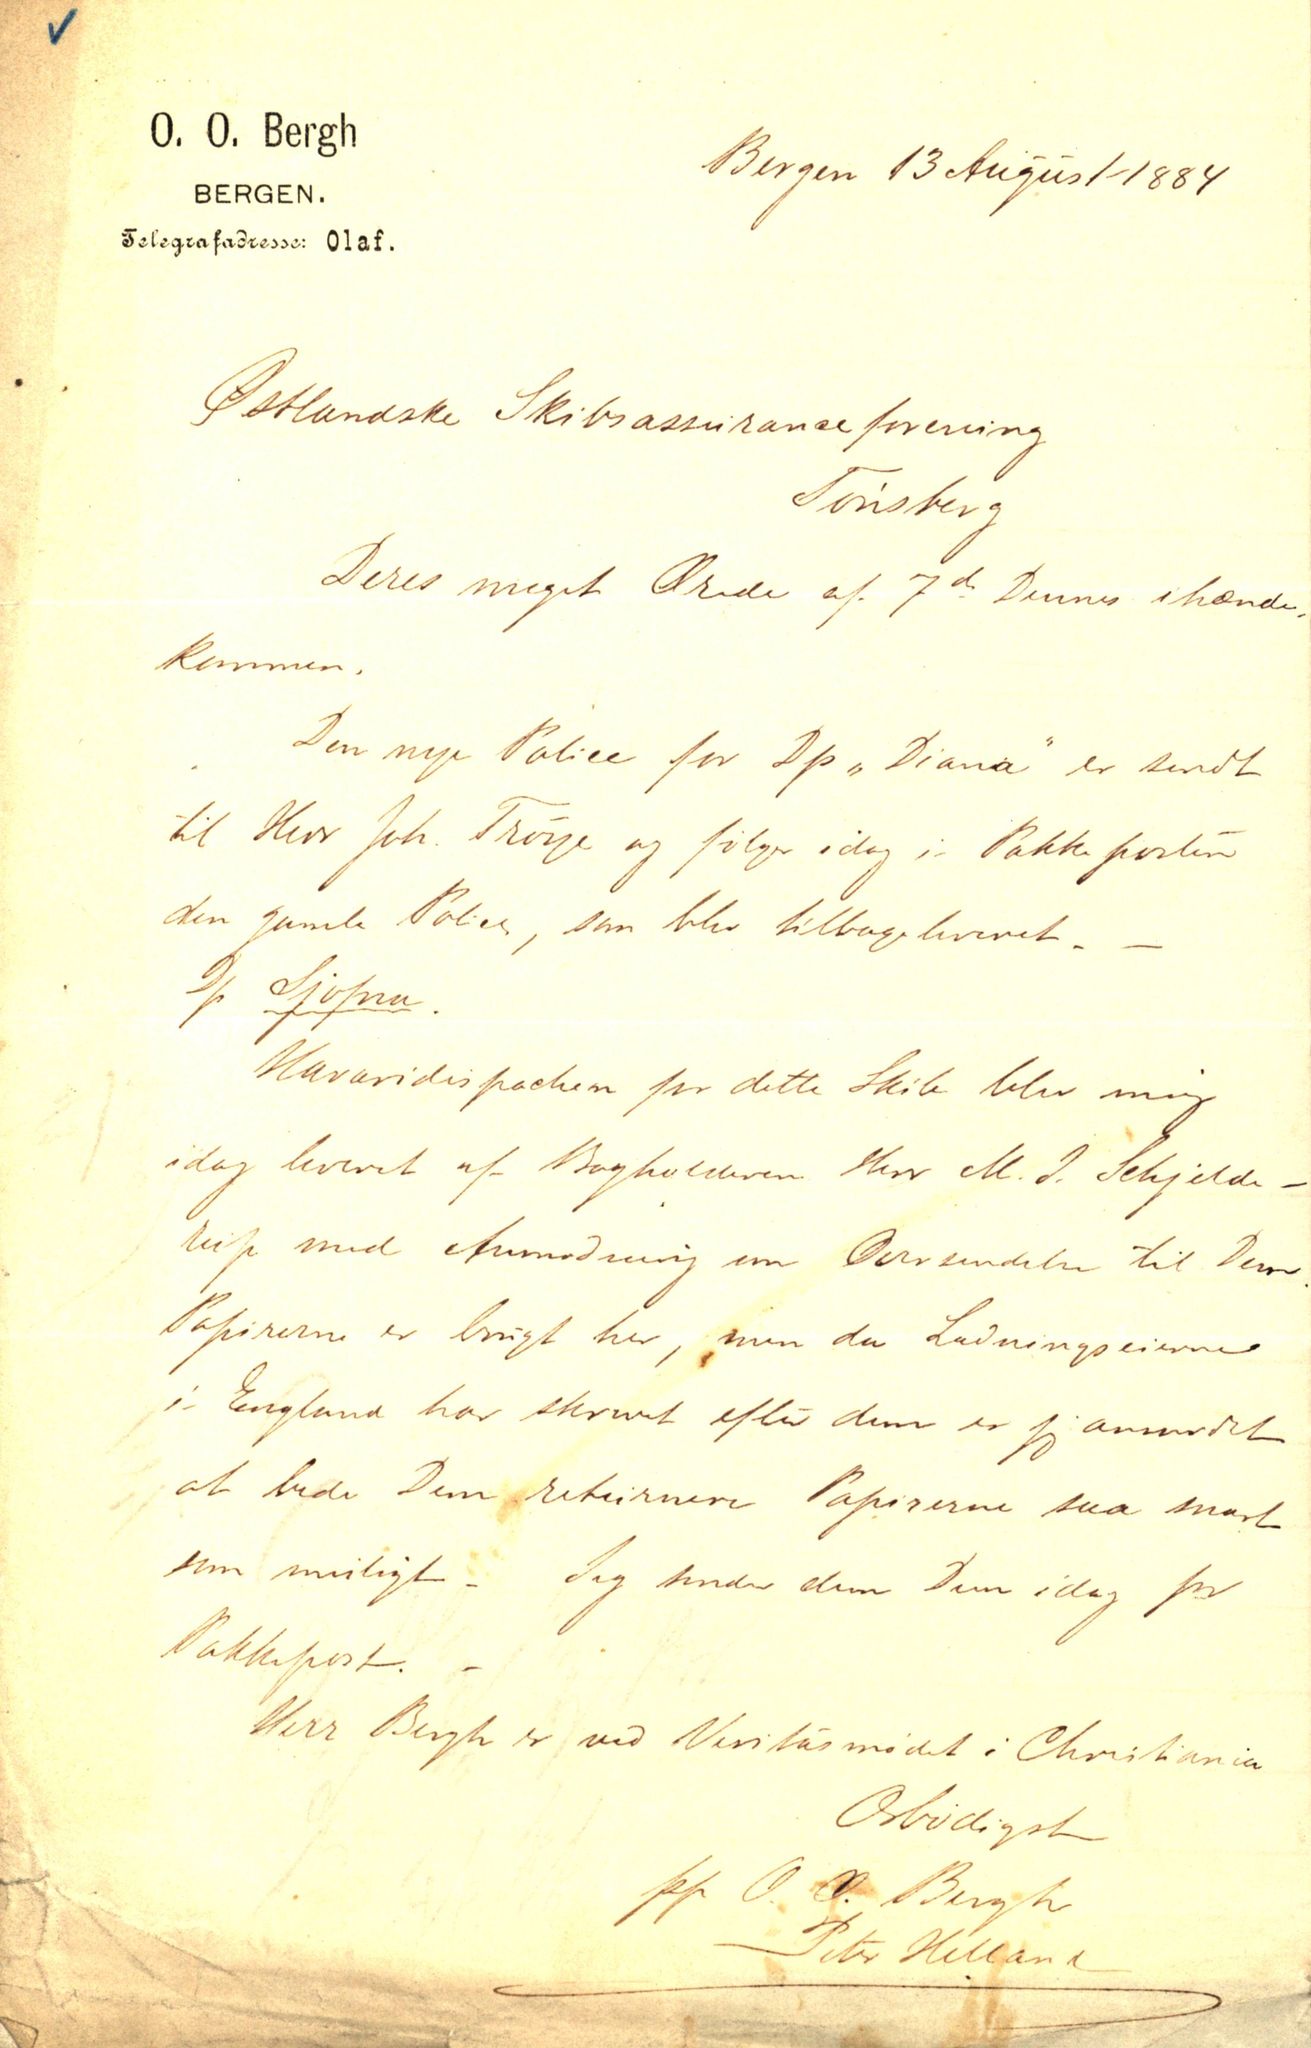 O. O. Bergh
BERGEN.
Telegrafadresse: Olaf.
Bergen 13 August 1884
Østlandske Skibsassuranceforening
Tönsberg
Deres meget Ærede af 7de Dennes ihænde-
kommen.
Den nye Police for Dp „Diana" er sendt
til Herr Joh. Tröye og følger idag i Pakkeposten
den gamle Police, som blev tilbageleveret. —
Dp Sjofna.
Havaridispachen for dette Skib blev mig
idag leveret af Bogholderen Herr M. J. Schjelde-
rup med Anmodning om Oversendelse til Dem.
Papirerne er brugt her, men da Ladningseierne
i England har skrevet efter dem er jeg anmodet
at bede Dem returnere Papirerne saa snart
som muligt - Jeg sender dem Dem idag pr
Pakkepost. -
Herr Bergh er ved Veritasmødet i Christiania
Ærbödigst
pp O. O. Bergh
Peter Helland